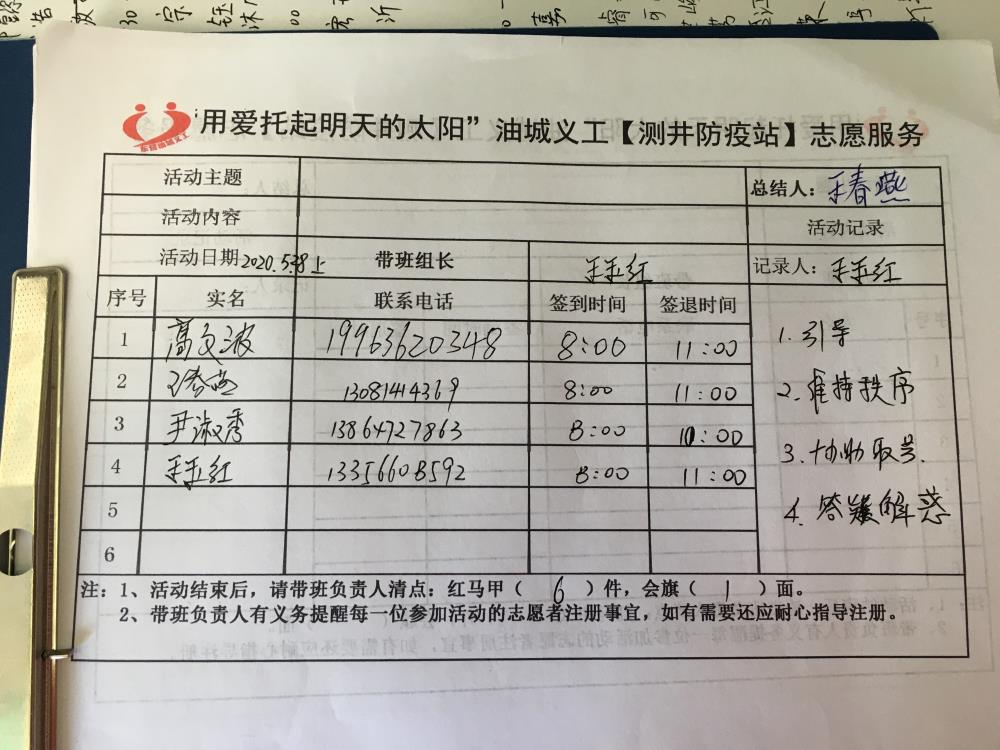 "用爱托起明天的太阳"油城义工【测井防疫站】志愿服务
活动主题 总结人：王春燕
活动内容 活动记录
活动日期 2020.5.28上 带班组长 王玉红 记录人：王玉红
序号 实名 联系电话 签到时间 签退时间
1 高文波 19963620348 8:00 11:00
2 13081414369 8:00 11:00
3 尹淑秀 13864727863 8:00 10:00
4 王玉红 13356608592 8:00 11:00
5
6
1.引导
2.维持秩序
3.协助取号.
4.答疑解惑
注：1、活动结束后，请带班负责人清点：红马甲（6）件，会旗（1）面。
2、带班负责人有义务提醒每一位参加活动的志愿者注册事宜，如有需要还应耐心指导注册。